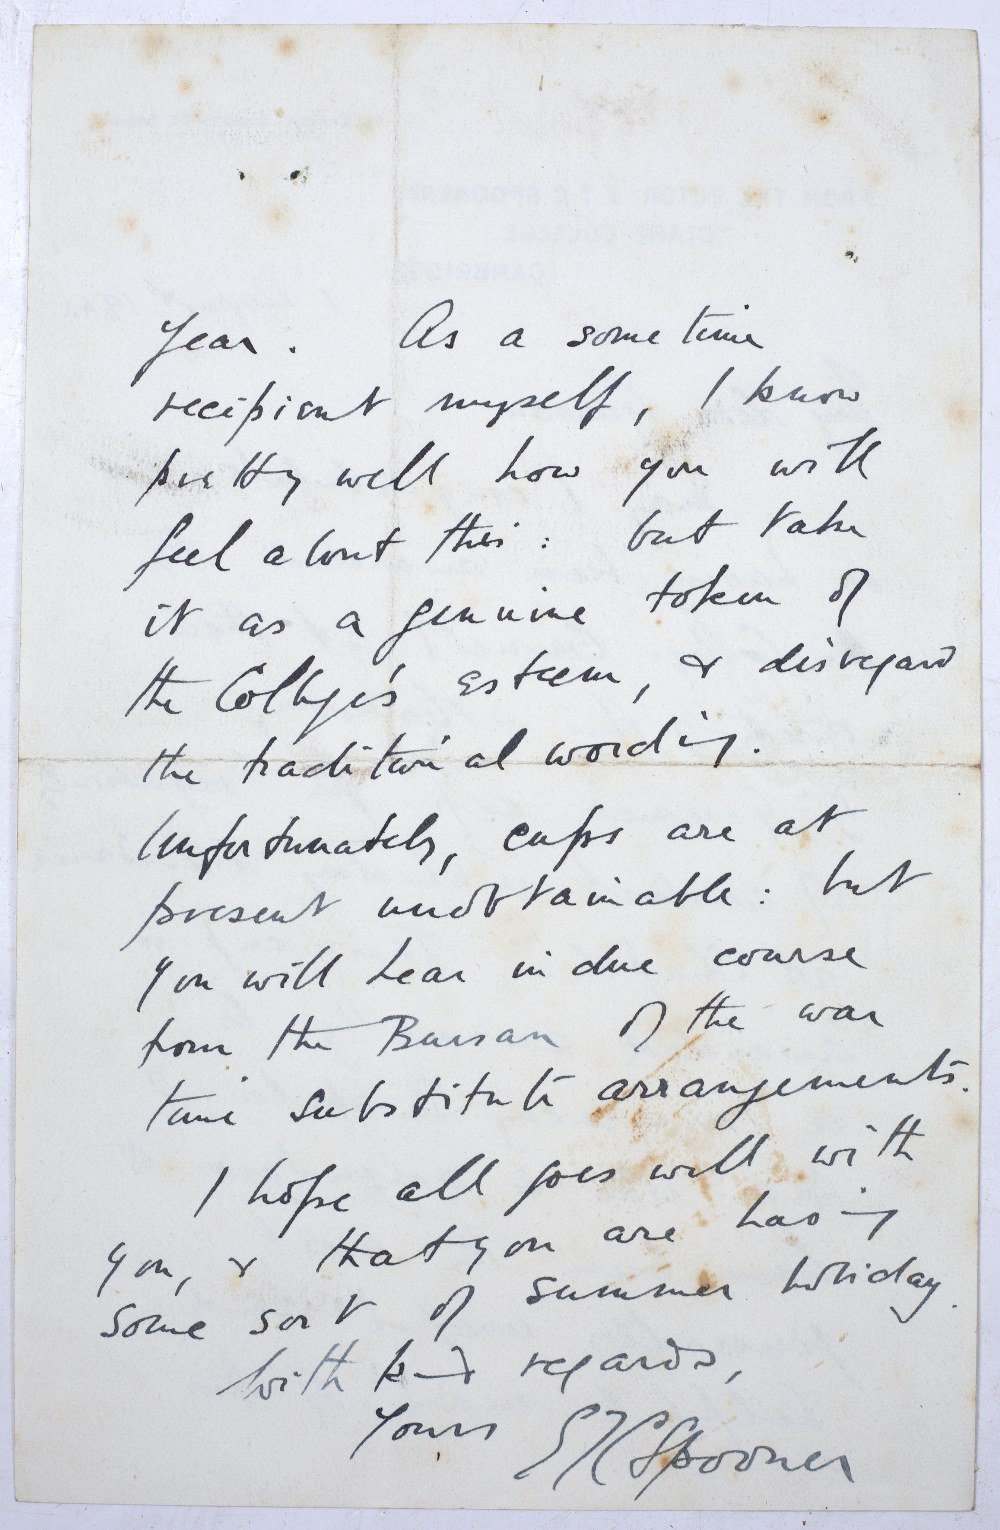 year. As a some time
recipient myself, I know
pretty well how you will
feel about this: but take
it as a genuine token of
the College's esteem, & disregard
the traditional wording.
Unfortunately, cups are at
present unobtainable: but
you will hear in due course
from the Bursar of the war
time substitute arrangements.
I hope all goes well with
you, & that you are having
some sort of summer holiday.
With kind regards,
Yours ETC Spooner